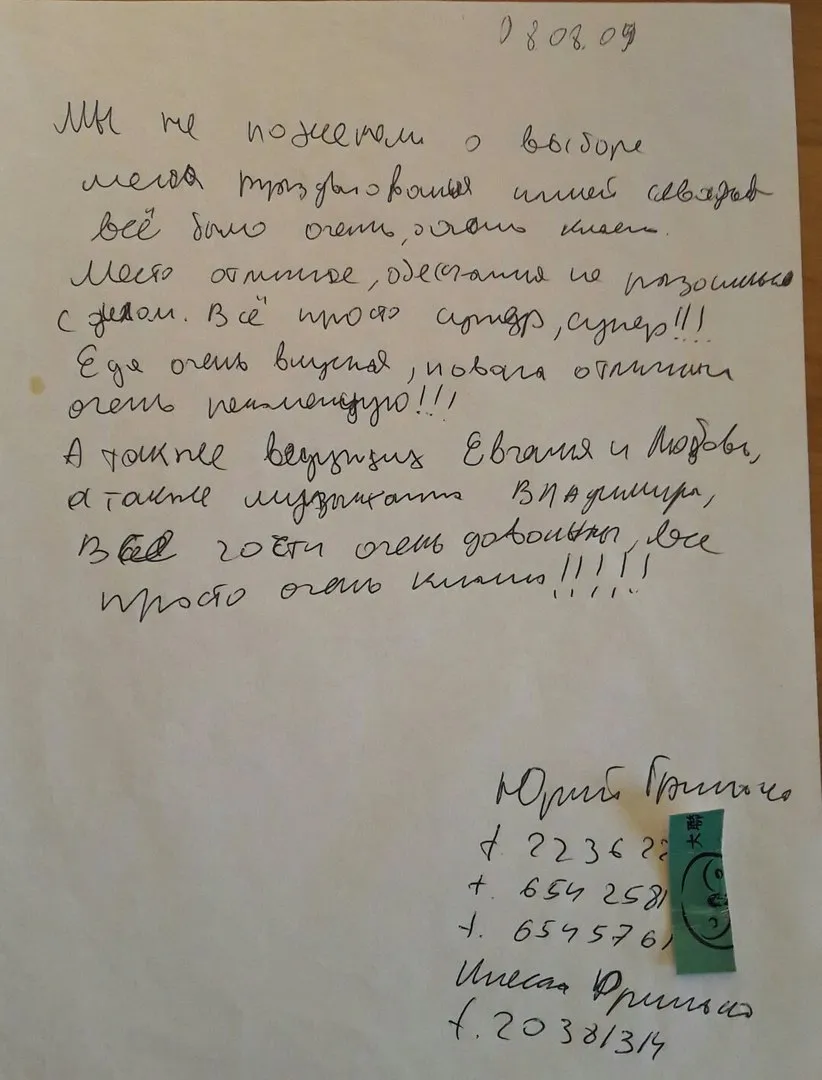 08.08.09
Мы не пожелели о выборе
места празднования нашей свадьбы
всё было очень, очень класно.
Место отличное, обещания не разошлись
с делом. Всё просто супер, супер!!!
Еда очень вкусная, повара отличные
очень рекомендую!!!
А также ведущих Евгения и Любовь,
а также музыканта Владимира,
Все гости очень довольны, все
просто очень класно!!!!!
Юрий Гринько
т. 2236 22
т. 654 2581
т. 6545761
大联
Инесса Гринько
т. 20381314